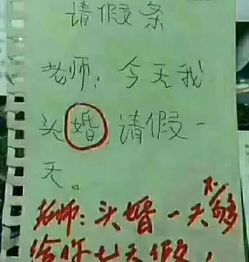 请假条
老师：今天我
头婚请假一
天。
老师：头婚一天不够
给你七天假，